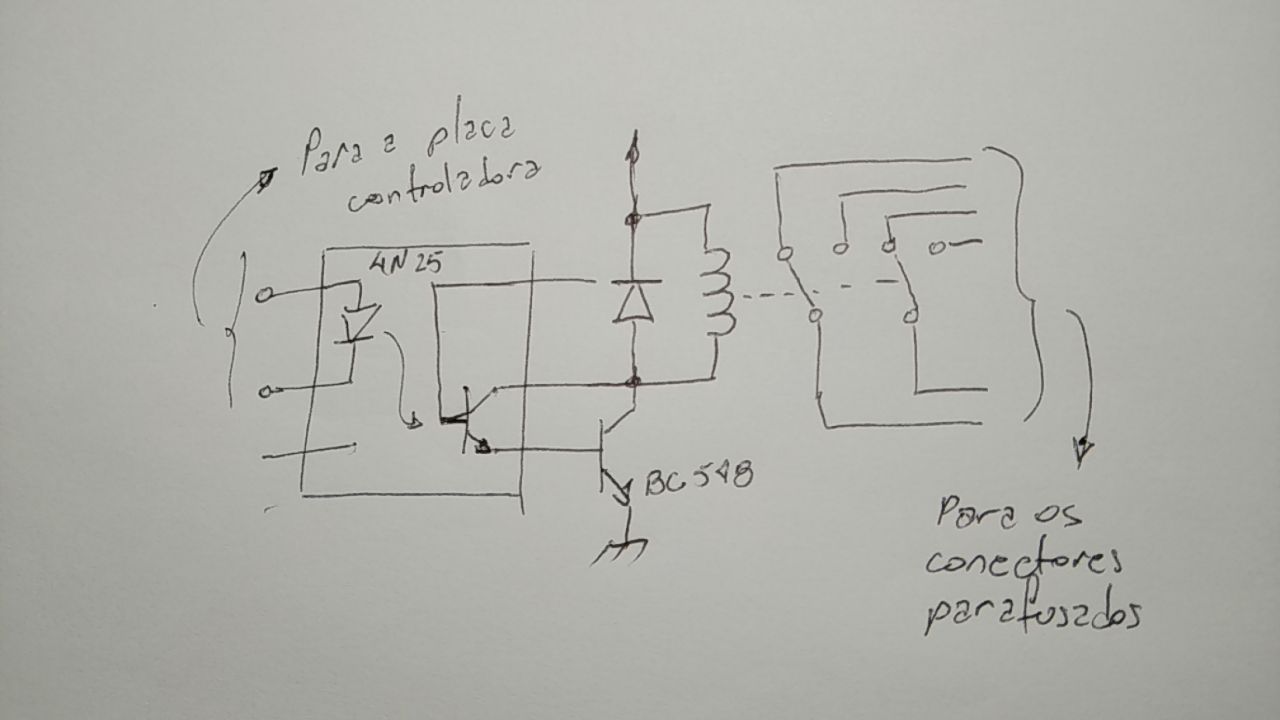 Para a placa
controladora
4N25
BC548
Para os
conectores
parafusados